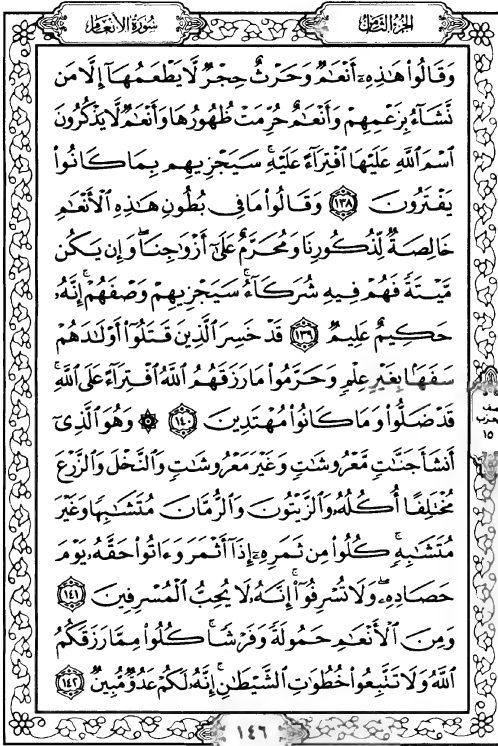 الجزء الثامن
سورة الأنعام
وَقَالُوا۟ هَٰذِهِۦٓ أَنْعَٰمٌ وَحَرْثٌ حِجْرٌ لَّا يَطْعَمُهَآ إِلَّا مَن
نَّشَآءُ بِزَعْمِهِمْ وَأَنْعَٰمٌ حُرِّمَتْ ظُهُورُهَا وَأَنْعَٰمٌ لَّا يَذْكُرُونَ
ٱسْمَ ٱللَّهِ عَلَيْهَا ٱفْتِرَآءً عَلَيْهِ ۚ سَيَجْزِيهِم بِمَا كَانُوا۟
يَفْتَرُونَ ١٣٨ وَقَالُوا۟ مَا فِى بُطُونِ هَٰذِهِ ٱلْأَنْعَٰمِ
خَالِصَةٌ لِّذُكُورِنَا وَمُحَرَّمٌ عَلَىٰٓ أَزْوَٰجِنَا ۖ وَإِن يَكُن
مَّيْتَةً فَهُمْ فِيهِ شُرَكَآءُ ۚ سَيَجْزِيهِمْ وَصْفَهُمْ ۚ إِنَّهُۥ
حَكِيمٌ عَلِيمٌ ١٣٩ قَدْ خَسِرَ ٱلَّذِينَ قَتَلُوٓا۟ أَوْلَٰدَهُمْ
سَفَهًۢا بِغَيْرِ عِلْمٍ وَحَرَّمُوا۟ مَا رَزَقَهُمُ ٱللَّهُ ٱفْتِرَآءً عَلَى ٱللَّهِ ۚ
قَدْ ضَلُّوا۟ وَمَا كَانُوا۟ مُهْتَدِينَ ١٤٠ ۞ وَهُوَ ٱلَّذِىٓ
أَنشَأَ جَنَّٰتٍ مَّعْرُوشَٰتٍ وَغَيْرَ مَعْرُوشَٰتٍ وَٱلنَّخْلَ وَٱلزَّرْعَ
مُخْتَلِفًا أُكُلُهُۥ وَٱلزَّيْتُونَ وَٱلرُّمَّانَ مُتَشَٰبِهًا وَغَيْرَ
مُتَشَٰبِهٍ ۚ كُلُوا۟ مِن ثَمَرِهِۦٓ إِذَآ أَثْمَرَ وَءَاتُوا۟ حَقَّهُۥ يَوْمَ
حَصَادِهِۦ ۖ وَلَا تُسْرِفُوٓا۟ ۚ إِنَّهُۥ لَا يُحِبُّ ٱلْمُسْرِفِينَ ١٤١
وَمِنَ ٱلْأَنْعَٰمِ حَمُولَةً وَفَرْشًا ۚ كُلُوا۟ مِمَّا رَزَقَكُمُ
ٱللَّهُ وَلَا تَتَّبِعُوا۟ خُطُوَٰتِ ٱلشَّيْطَٰنِ ۚ إِنَّهُۥ لَكُمْ عَدُوٌّ مُّبِينٌ ١٤٢
١٥
١٤٦